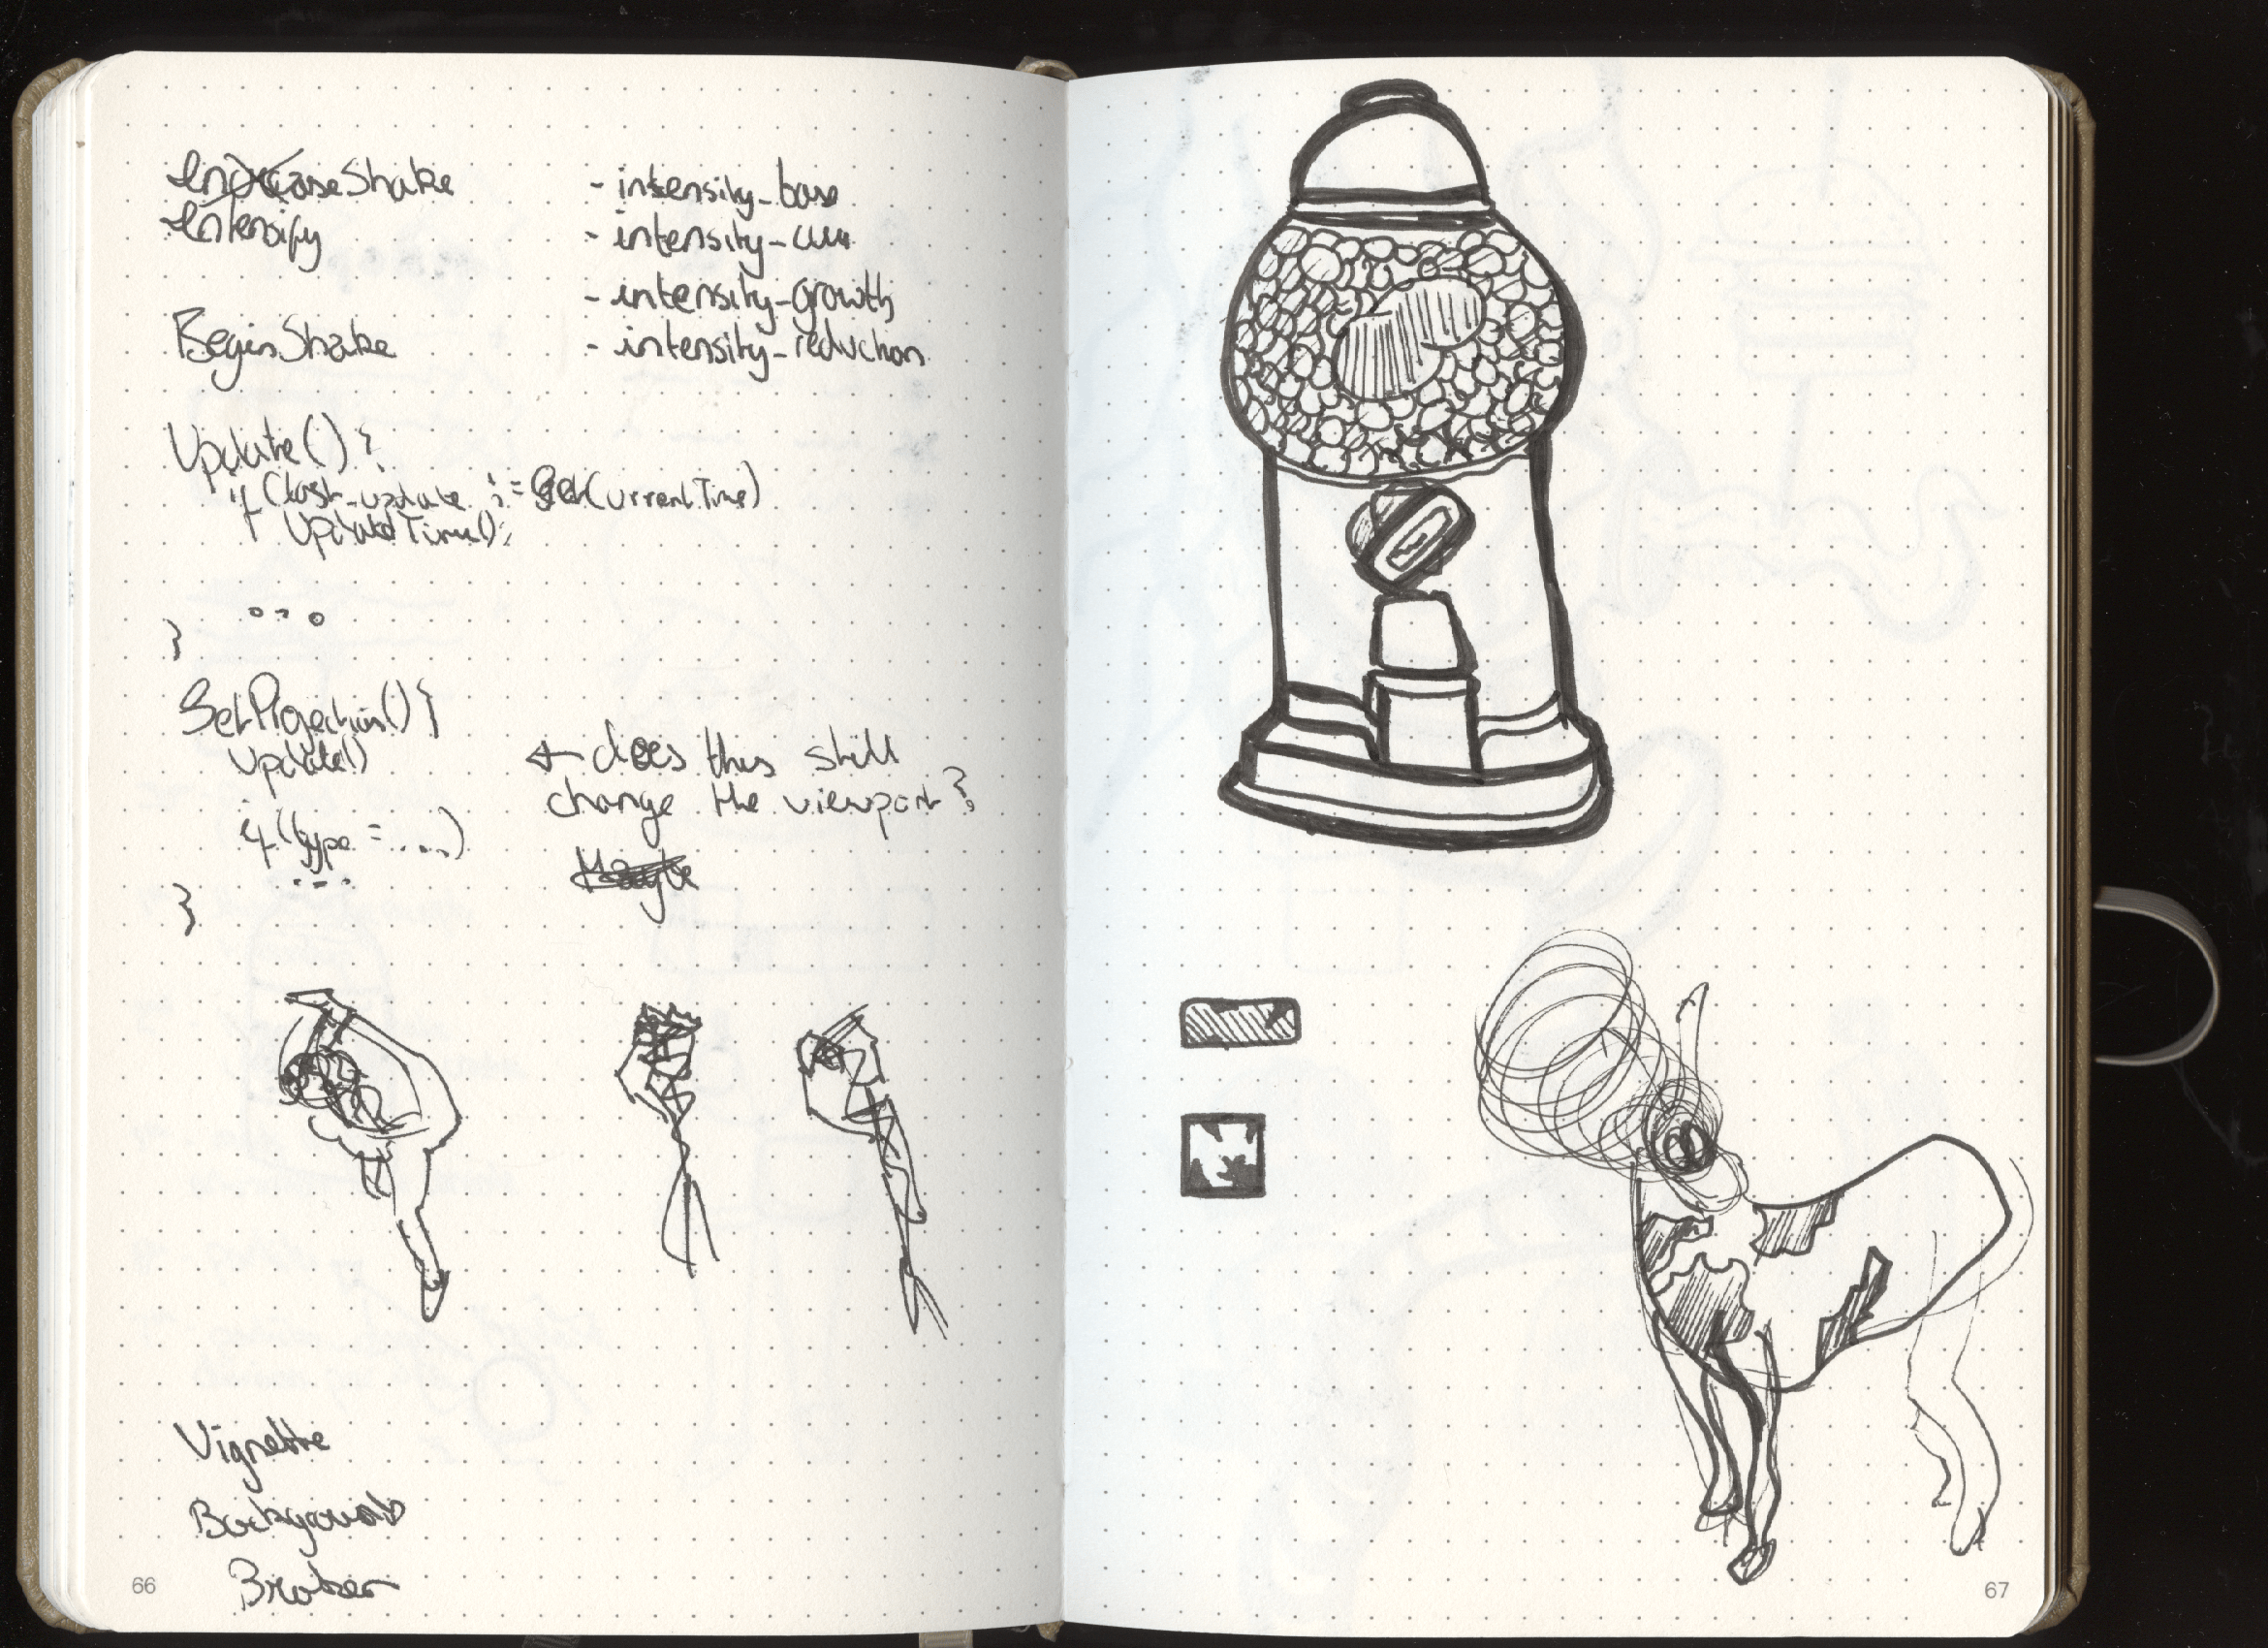 IncreaseShake
Intensify
BeginShake
- intensity_base
- intensity_cur
- intensity_growth
- intensity_reduction
Update() {
if (last_update != GetCurrentTime)
UpdateTime();
...
}
SetProjection() {
Update()
if (type = ....)
...
}
← does this still
change the viewport?
Maybe
Vignette
Background
Broken
66
67